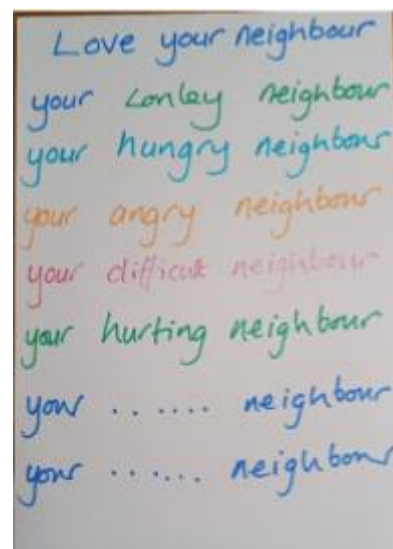 Love your neighbour
your Lonley neighbour
your hungry neighbour
your angry neighbour
your difficult neighbour
your hurting neighbour
your ....... neighbour
your ...... neighbour